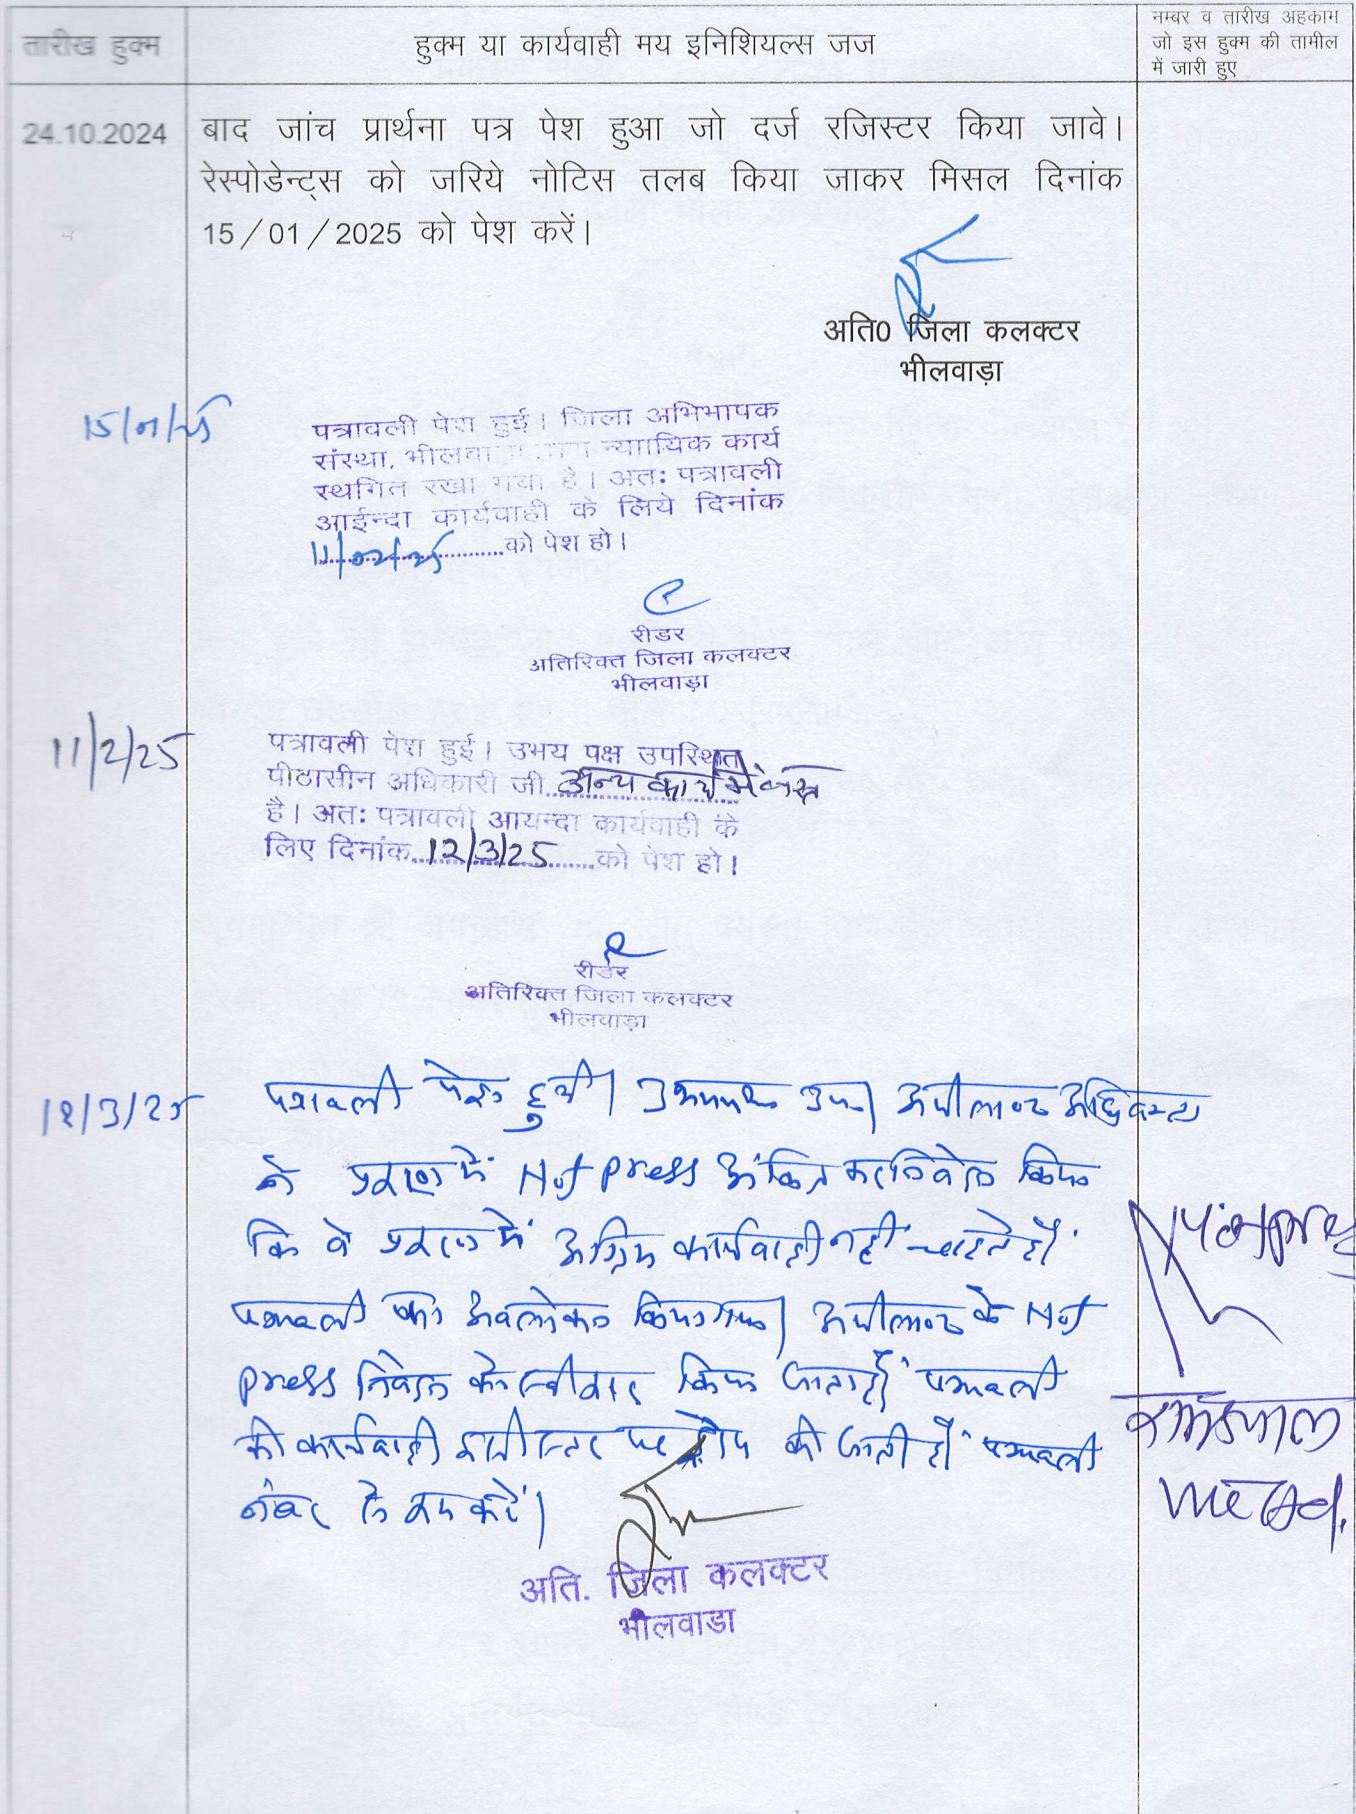 तारीख हुक्म
हुक्म या कार्यवाही मय इनिशियल्स जज
नम्बर व तारीख अहकाम
जो इस हुक्म की तामील
में जारी हुए
24.10.2024
बाद जांच प्रार्थना पत्र पेश हुआ जो दर्ज रजिस्टर किया जावे।
रेस्पोडेन्ट्स को जरिये नोटिस तलब किया जाकर मिसल दिनांक
15/01/2025 को पेश करें।
अति0 जिला कलक्टर
भीलवाड़ा
15/01/25
पत्रावली पेश हुई। जिला अभिभापक
संस्था, भीलवाड़ा न्यायिक कार्य
स्थगित रखा गया है। अतः पत्रावली
आईन्दा कार्यवाही के लिये दिनांक
11/02/25 को पेश हो।
रीडर
अतिरिक्त जिला कलक्टर
भीलवाड़ा
11/2/25
पत्रावली पेश हुई। उभय पक्ष उपस्थित
पीठासीन अधिकारी जी अन्य कार्य में व्यस्त
है। अतः पत्रावली आयन्दा कार्यवाही के
लिए दिनांक 12/3/25 को पेश हो।
रीडर
अतिरिक्त जिला कलक्टर
भीलवाड़ा
12/3/25
पत्रावली पेश हुयी। उभयपक्ष उप। अपीलान्ट अधिवक्ता
ने प्रकरण में Not press अंकित कर निवेदन किया
कि वे प्रकरण में अग्रिम कार्यवाही नहीं चाहते हैं।
पत्रावली का अवलोकन किया गया। अपीलान्ट के Not
press निवेदन को स्वीकार किया जाता है। पत्रावली
की कार्यवाही इसी स्तर पर ड्रॉप की जाती है। पत्रावली
नंबर से कम करें।
अति. जिला कलक्टर
भीलवाडा